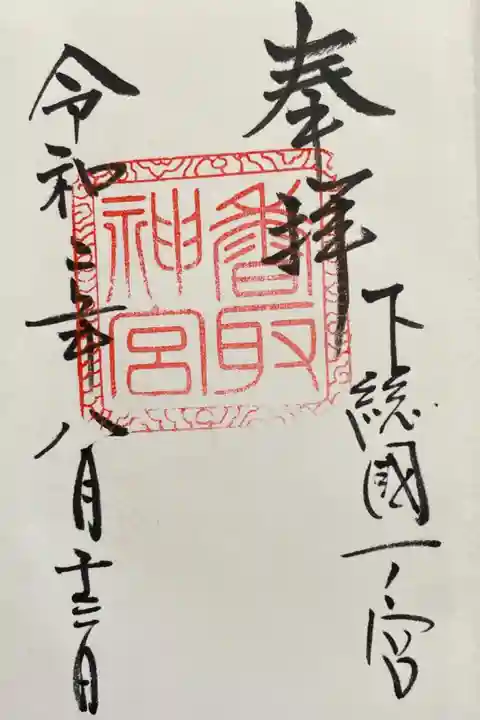 奉拝
下総國一ノ宮
香取神宮
令和二年八月十三日